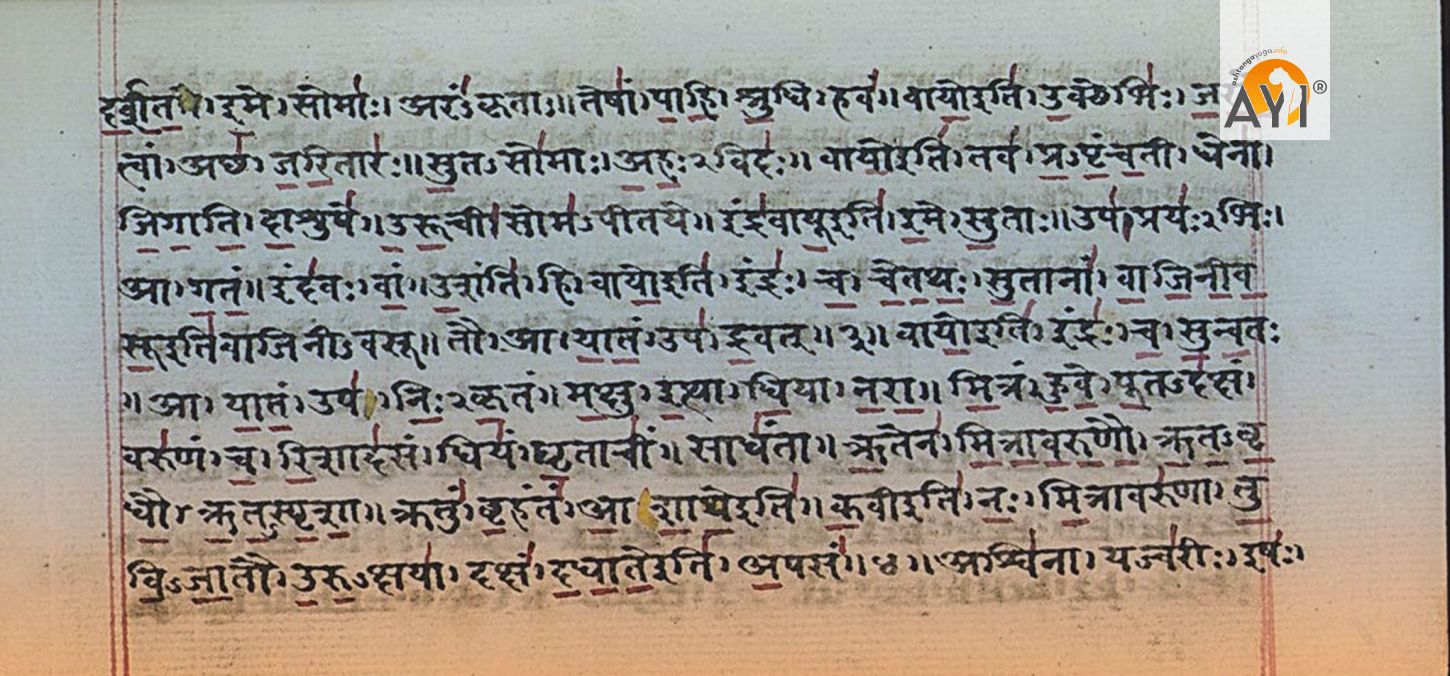 दर्शत। इमे। सोमाः। अरंऽकृताः॥ तेषां। पाहि। श्रुधि। हवं॥ वायोइति। उक्थेभिः। ज
त्वां। अच्छ। जरितारः॥ सुतऽसोमाः। अहःऽविदः॥ वायोइति। तव। प्रऽपृंचती। धेना।
जिगाति। दाशुषे॥ उरूची। सोमऽपीतये॥ इंद्रवायूइति। इमे। सुताः॥ उप। प्रयःऽभिः।
आ। गतं॥ इंदवः। वां। उशंति। हि॥ वायोइति। इंद्रः। च। चेतथः। सुतानां। वाजिनीव
सूइतिवाजिनीऽवसू॥ तौ। आ। यातं। उप। द्रवत्॥ ३॥ वायोइति। इंद्रः। च। सुन्वतः
। आ। यातं। उप। निःऽकृतं॥ मक्षु। इत्था। धिया। नरा॥ मित्रं। हुवे। पूतऽदक्षं।
वरुणं। च। रिशादसं। धियं। घृताचीं॥ साधंता॥ ऋतेन। मित्रावरुणौ। ऋतऽवृ
धौ। ऋतऽस्पृशा॥ क्रतुं। बृहंतं। आशाथेइति॥ कवीइति। नः। मित्रावरुणा। तु
विऽजातौ। उरुऽक्षया। दक्षं। दधातेइति। अपसं॥ ४॥ अश्विना। यज्वरीः। इषः।
ashtangayoga.info
AYI®